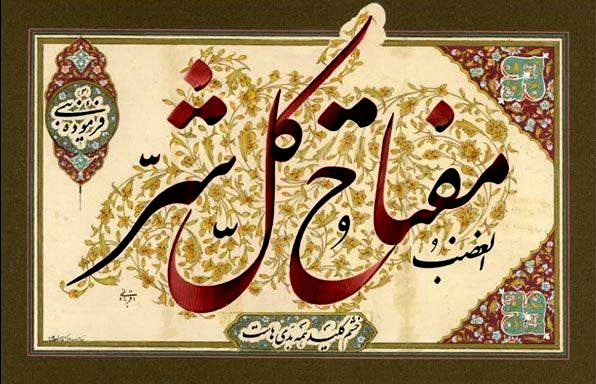 فرموده نبی
الغضب مفتاح کلّ شرّ
خشم کلید همه بدی هاست